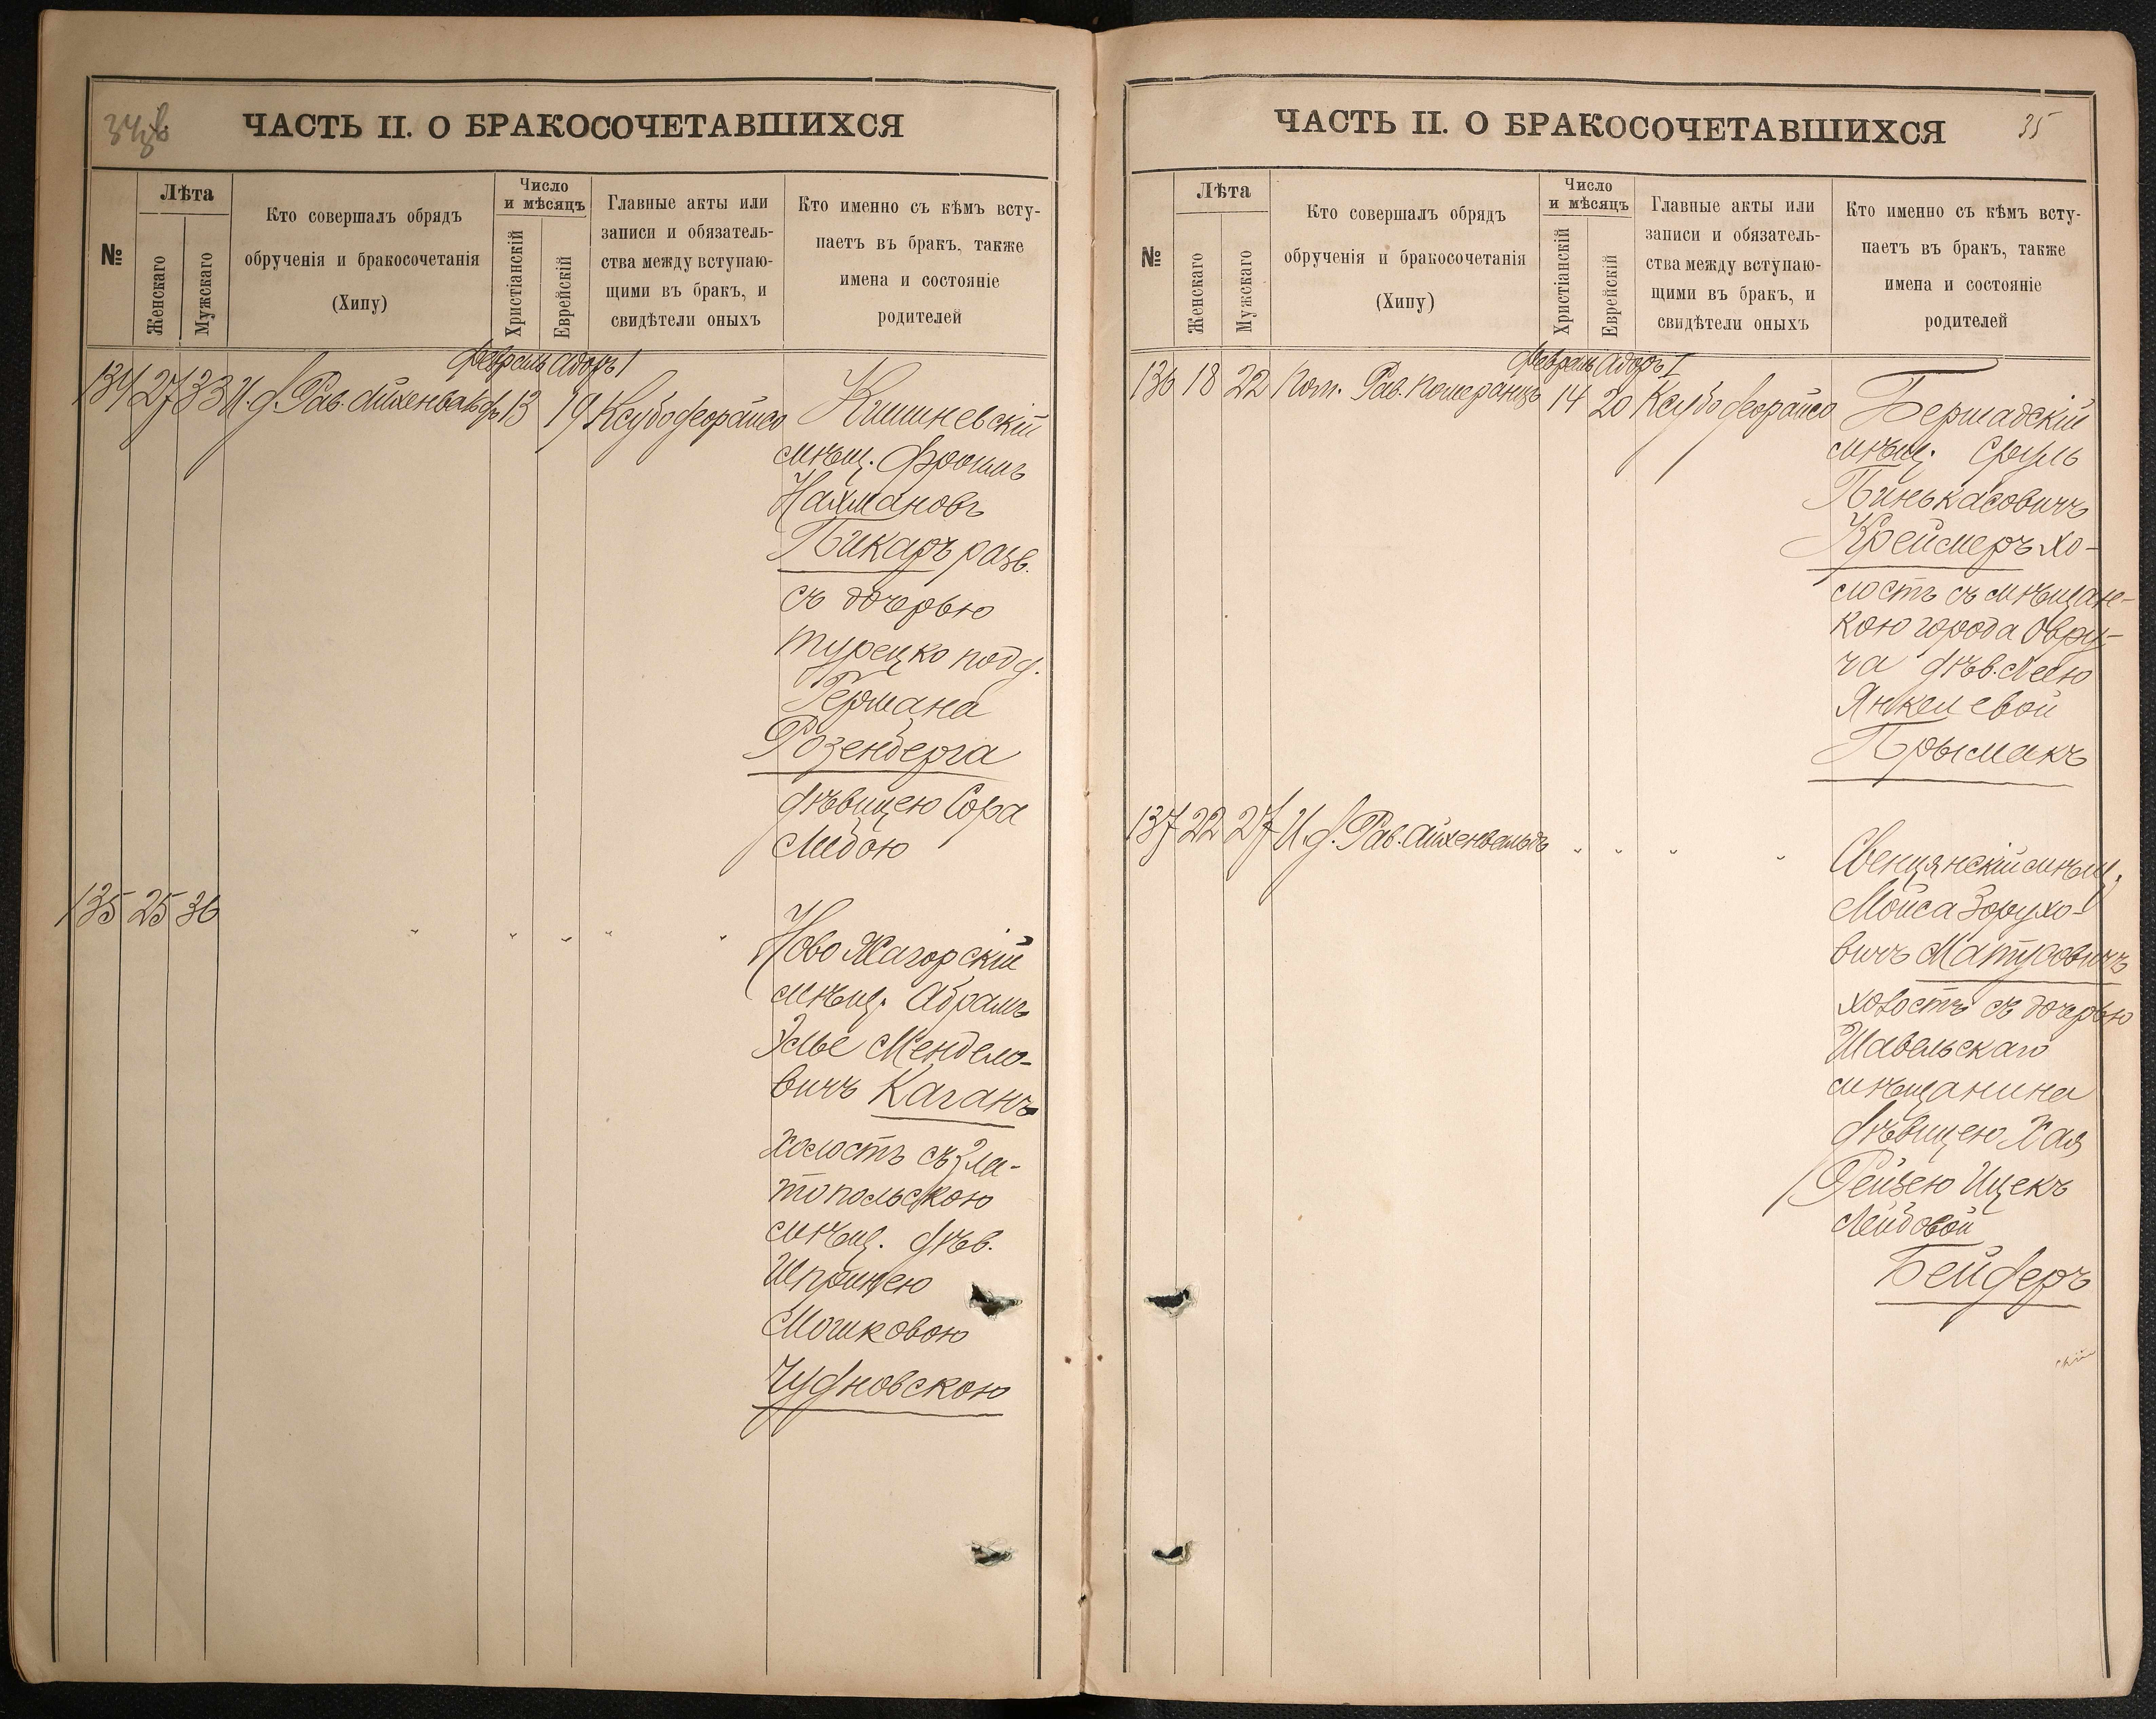 34
ЧАСТЬ II. О БРАКОСОЧЕТАВШИХСЯ
№
Лѣта
Женскаго
Мужскаго
Кто совершалъ обрядъ
обрученія и бракосочетанія
(Хипу)
Число
и мѣсяцъ
Христіанскій
Еврейскій
Главные акты или
записи и обязатель-
ства между вступаю-
щими въ бракъ, и
свидѣтели оныхъ
Кто именно съ кѣмъ всту-
паетъ въ бракъ, также
имена и состояніе
родителей
Февраль Адоръ I
134 27 33 И. д. Рав. Айхенвальдъ 13 19 Ксубо деорайсо Кишиневскій
мѣщ. Фроимъ
Нахмановъ
Пикаръ разв.
съ дочерью
турецко подд.
Германа
Розенберга
дѣвицею Сора
Либою
135 25 36 " " " " "
Ново Жагорскій
мѣщ. Абрамъ
Элье Менделе-
вичъ Каганъ
холостъ съ Зла-
топольскою
мѣщ. дѣв.
Шпринцею
Мошковою
Чудновскою
ЧАСТЬ II. О БРАКОСОЧЕТАВШИХСЯ
35
№
Лѣта
Женскаго
Мужскаго
Кто совершалъ обрядъ
обрученія и бракосочетанія
(Хипу)
Число
и мѣсяцъ
Христіанскій
Еврейскій
Главные акты или
записи и обязатель-
ства между вступаю-
щими въ бракъ, и
свидѣтели оныхъ
Кто именно съ кѣмъ всту-
паетъ въ бракъ, также
имена и состояніе
родителей
Февраль Адоръ I
136 18 22 Пом. Рав. Померанцъ 14 20 Ксубо деорайсо Бершадскій
мѣщ. Сруль
Пинькасовичъ
Креймеръ хо-
лостъ съ мѣщан-
кою города Овру-
ча дѣв. Леею
Янкелевой
Прымакъ
137 22 27 И. д. Рав. Айхенвальдъ " " " "
Свенцянскій мѣщ.
Мойса Зорухо-
вичъ Матусовичъ
холостъ съ дочерью
Шавельскаго
мѣщанина
дѣвицею Хая
Рейзею Ицекъ
Лейбовой
Бейдеръ